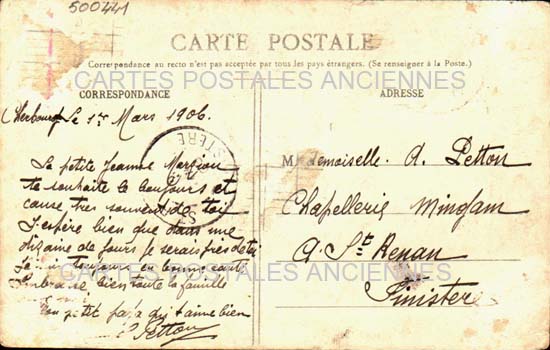 500441
CARTE POSTALE
Correspondance au recto n'est pas acceptée par tous les pays étrangers. (Se renseigner à la Poste.)
CARTES POSTALES ANCIENNES
CORRESPONDANCE
Cherbourg le 1er Mars 1906.
La petite Jeanne
te souhaite le bonjours et
cause tres souvent de toi
J'espère bien que dans une
dizaine de jours je serais près de toi
Je suis toujours en bonne santé
Embrasse bien toute la famille
Ton petit papa qui t'aime bien
Petton
FINISTERE
ADRESSE
Mademoiselle A. Petton
Chapellerie Mingam
A St Renan
Finistere
CARTES POSTALES ANCIENNES